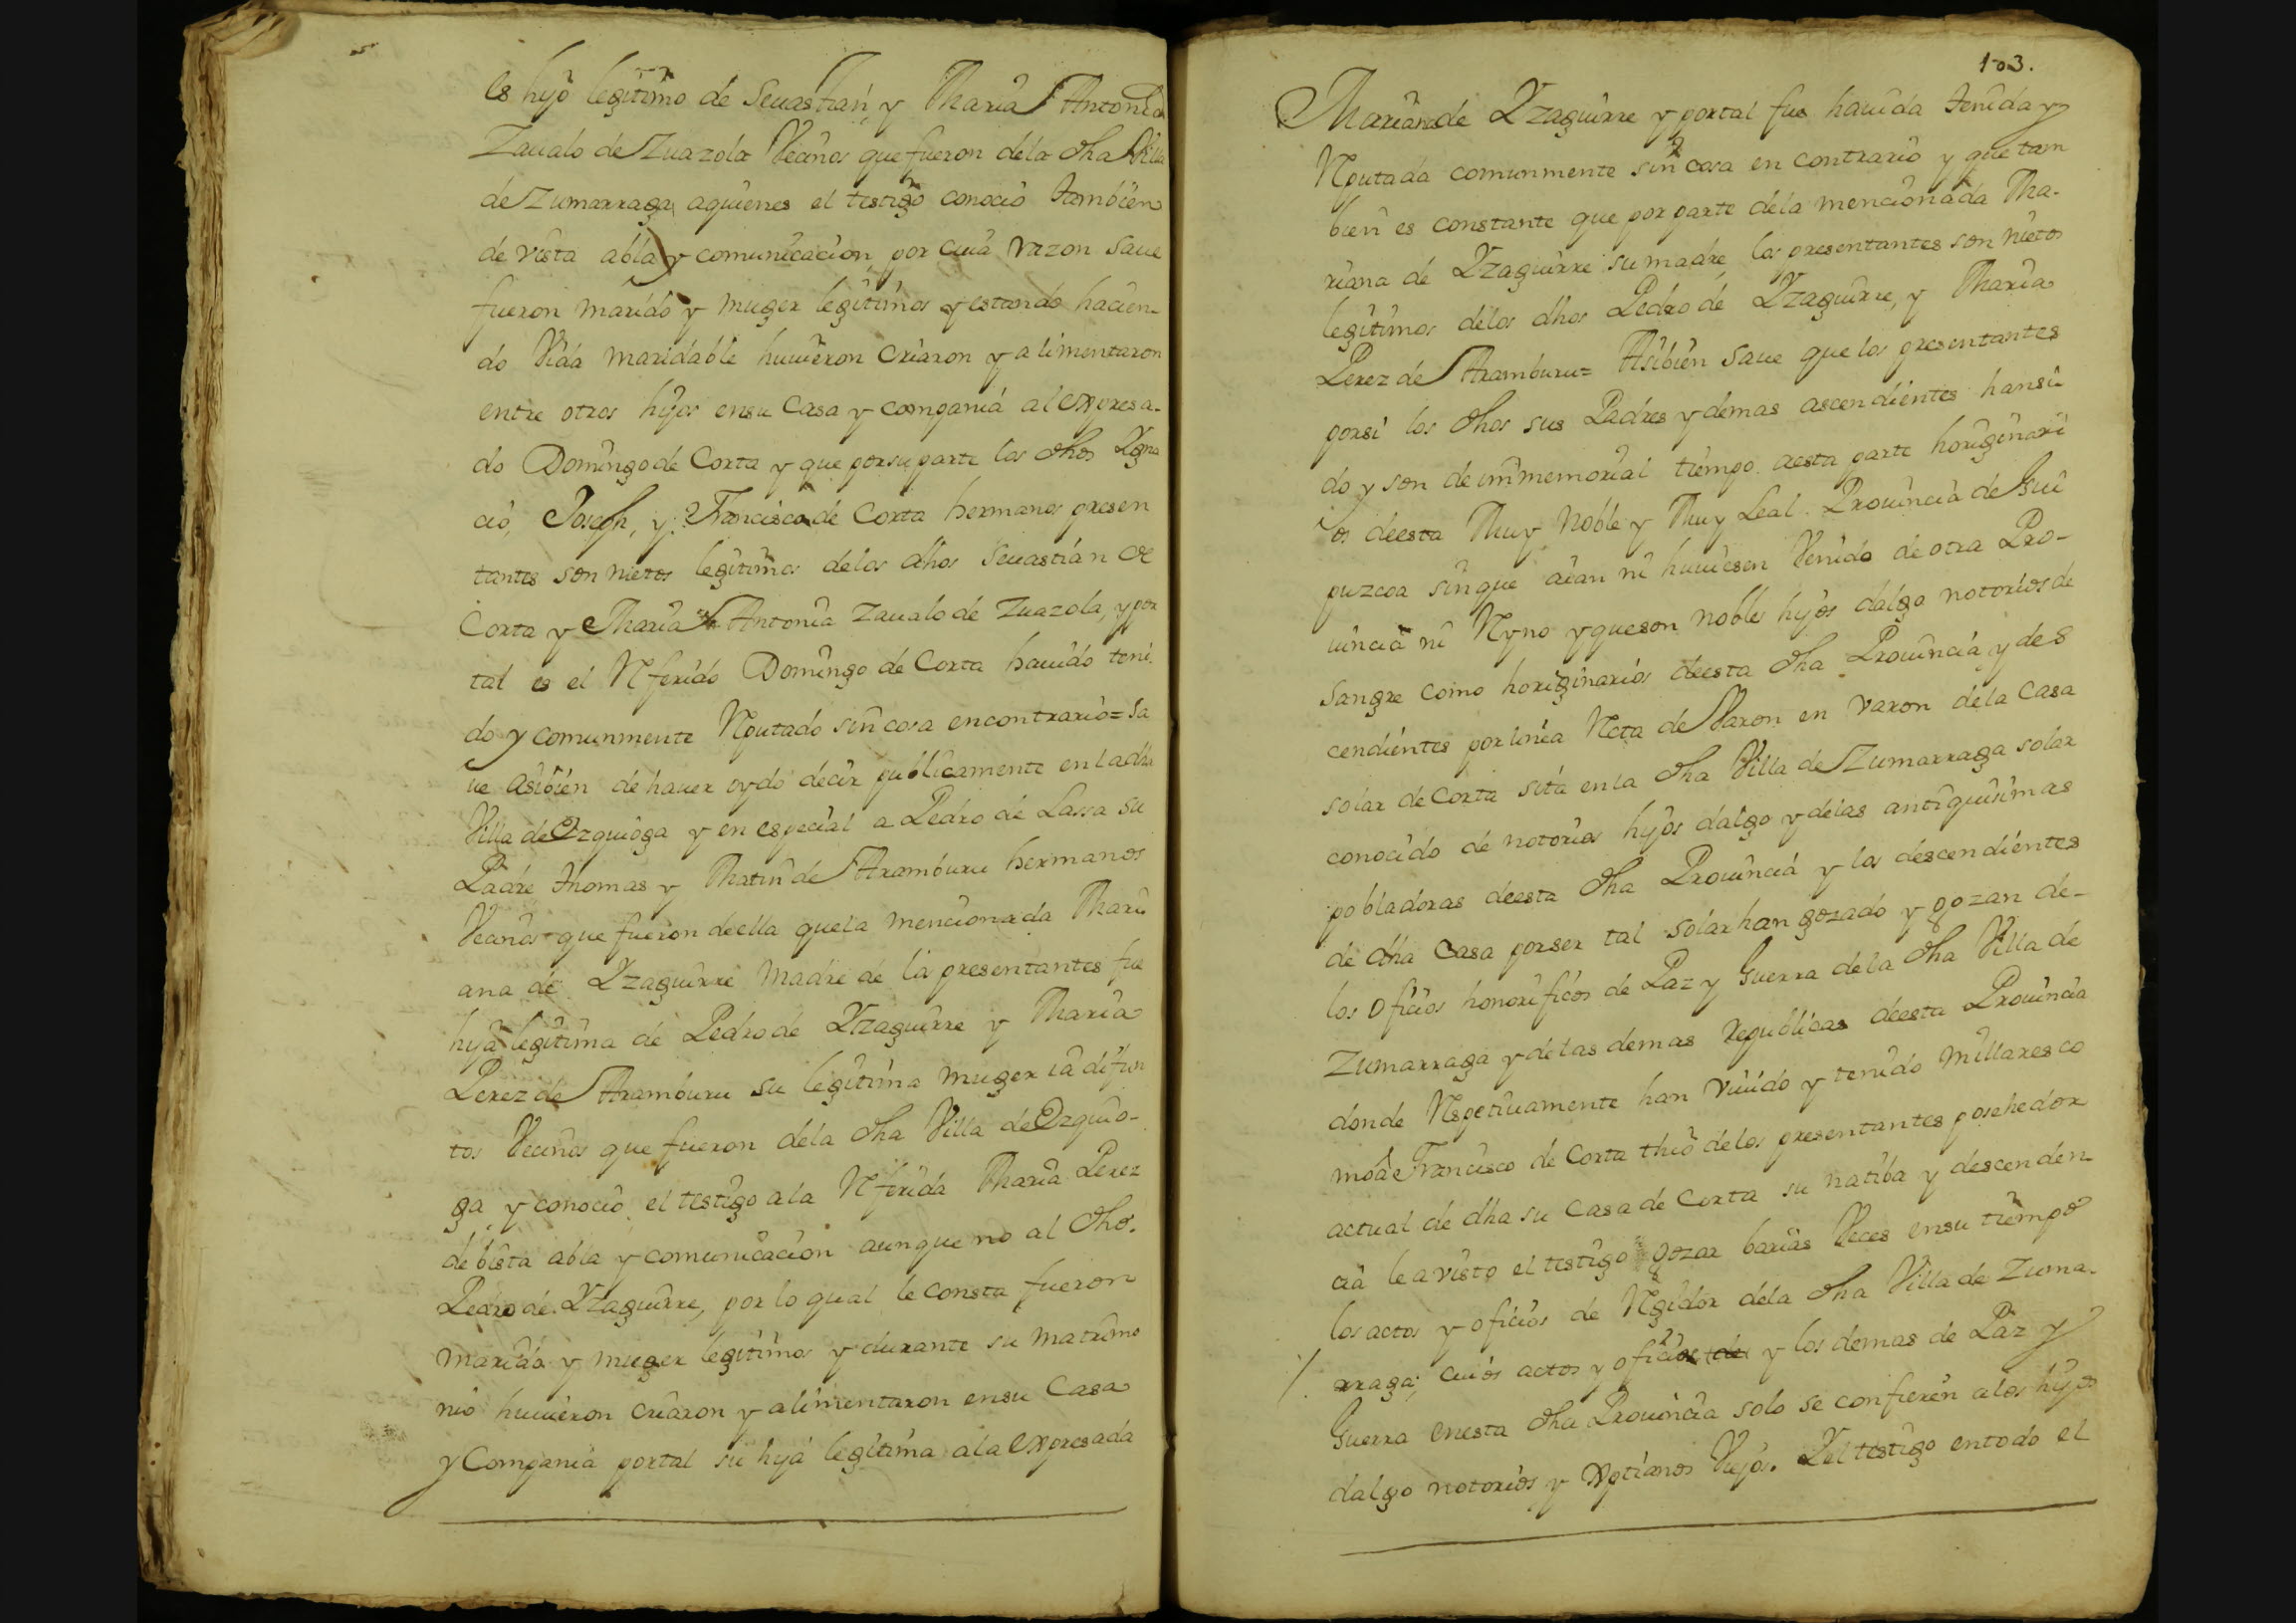 es hijo legitimo de Seuastian, y Maria Antonia
Zaualo de Zuazola Vecinos que fueron dela dha Villa
de Zumarraga, aquienes el testigo conocio tambien
de vista abla y comunicacion, por cuia razon saue
fueron marido y muger legitimos y estando hacien-
do Vida maridable huuieron Criaron y alimentaron
entre otros hijos ensu Casa y compania al expresa-
do Domingo de Corta y que porsuparte los dhos Ygna
cio, Joseph, y Francisco de Corta hermanos presen
tantes son nietos legitimos delos dhos Seuastian de
Corta y Maria Antonia Zaualo de Zuazola, y por
tal es el Rferido Domingo de Corta hauido teni-
do y comunmente Rputado sin cosa encontrario= Sa
ue asibien de hauer oydo decir publicamente en la dha
Villa de Ezquioga y en especial a Pedro de Lassa su
Padre thomas y Matin de Aramburu hermanos
Vecinos que fueron deella quela mencionada Mari
ana de Yzaguirre Madre de los presentantes fue
hija legitima de Pedro de Yzaguirre y Maria
Perez de Aramburu su legitima muger ia difun
tos Vecinos que fueron dela dha Villa de Ezquio-
ga, y conocio el testigo ala Rferida Maria Perez
de bista abla y comunicacion aunque no al dho.
Pedro de Yzaguirre, por lo qual le consta fueron
marido y muger legitimos y durante su matrimo
nio huuieron criaron y alimentaron ensu Casa
y Compania portal su hija legitima ala expresada
103.
Mariana de Yzaguirre y portal fue hauida tenida y
Rputada comunmente sin cosa en contrario y que tam
bien es constante que por parte dela mencionada Ma-
riana de Yzaguirre su madre los presentantes son nietos
legitimos delos dhos Pedro de Yzaguirre, y Maria
Perez de Aramburu= Asibien saue que los presentantes
porsi los dhos sus Padres y demas ascendientes hansi
do y son de inmemorial tiempo aesta parte horiginari
os deesta Muy Noble y Muy Leal Prouincia de Gui
puzcoa sinque aian ni huuiesen Venido de otra Pro-
uincia ni Ryno y queson nobles hijos dalgo notorios de
Sangre como horiginarios deesta dha Prouincia y des
cendientes por linea Rcta de Varon en varon dela Casa
solar de Corta sita en la dha Villa de Zumarraga solar
conocido de notorios hijos dalgo y delas antiquisimas
pobladoras deesta dha Prouincia y los descendientes
de dha Casa porser tal solar han gozado y gozan de-
los oficios honorificos de Paz y Guerra dela dha Villa de
Zumarraga y delas demas republicas deesta Prouincia
donde Rspetiuamente han viuido y tenido millares co
mo a Francisco de Corta thio delos presentantes posehedor
actual de dha su Casa de Corta su natiba y descenden
cia le a visto el testigo gozar barias Veces ensu tiempo
los actos y oficios de Rgidor dela dha Villa de Zuma-
rraga; cuios actos y oficios de y los demas de Paz y
Guerra enesta dha Prouincia solo se confieren alos hijos
dalgo notorios y xptianos Viejos. Y el testigo entodo el